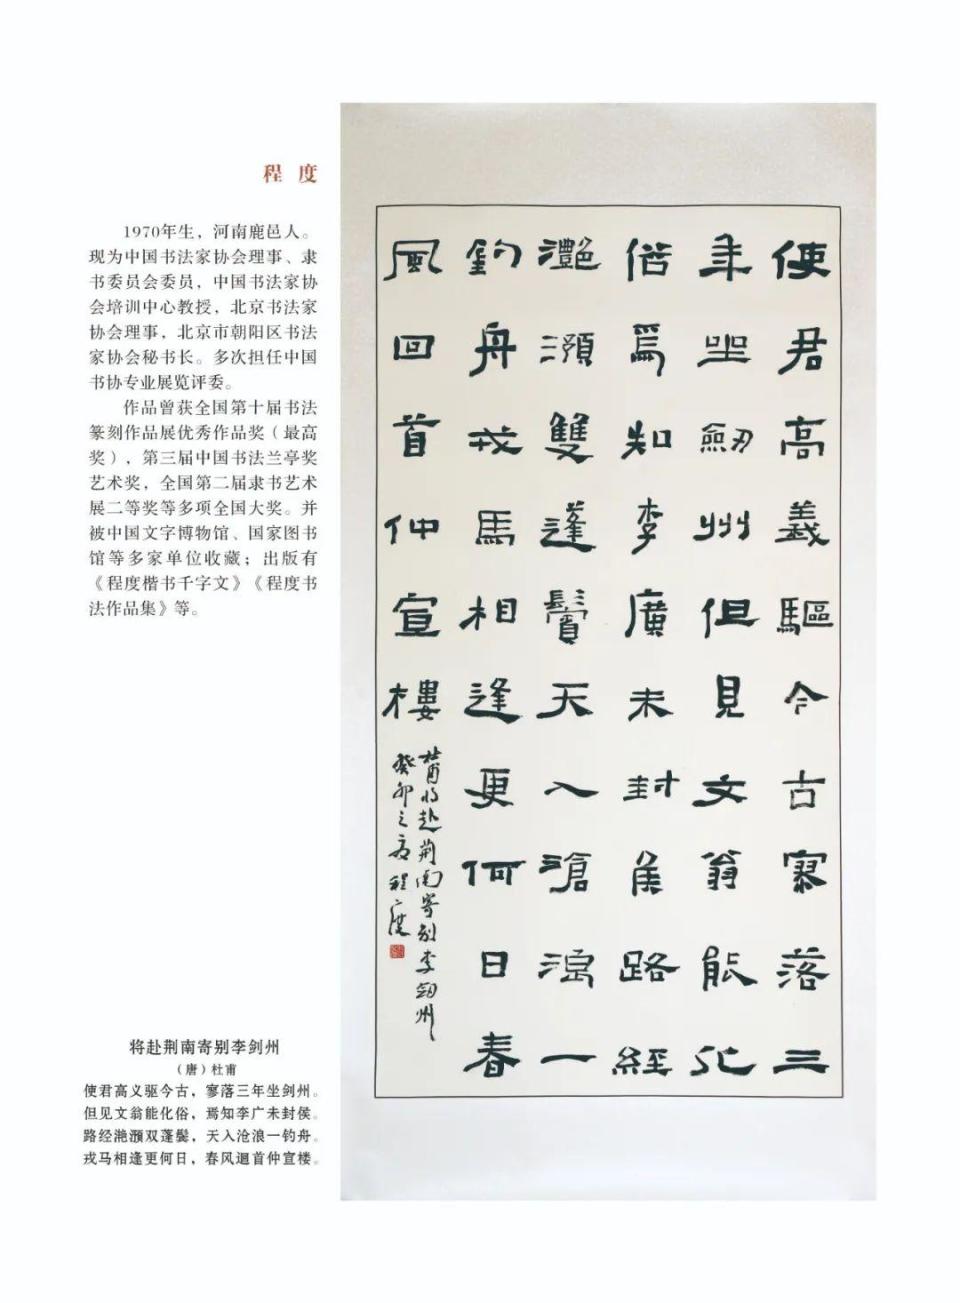 程度
1970年生，河南鹿邑人。
现为中国书法家协会理事、隶
书委员会委员，中国书法家协
会培训中心教授，北京书法家
协会理事，北京市朝阳区书法
家协会秘书长。多次担任中国
书协专业展览评委。
作品曾获全国第十届书法
篆刻作品展优秀作品奖（最高
奖），第三届中国书法兰亭奖
艺术奖，全国第二届隶书艺术
展二等奖等多项全国大奖。并
被中国文字博物馆、国家图书
馆等多家单位收藏；出版有
《程度楷书千字文》《程度书
法作品集》等。
使君高義驅今古寥落三
年坐劒州但見文翁能化
俗焉知李廣未封侯路經
灔澦雙蓬鬢天入滄浪一
釣舟戎馬相逢更何日春
風回首仲宣樓
杜甫将赴荆南寄别李劒州
癸卯之夏程度
将赴荆南寄别李剑州
（唐）杜甫
使君高义驱今古，寥落三年坐剑州。
但见文翁能化俗，焉知李广未封侯。
路经滟滪双蓬鬓，天入沧浪一钓舟。
戎马相逢更何日，春风迴首仲宣楼。